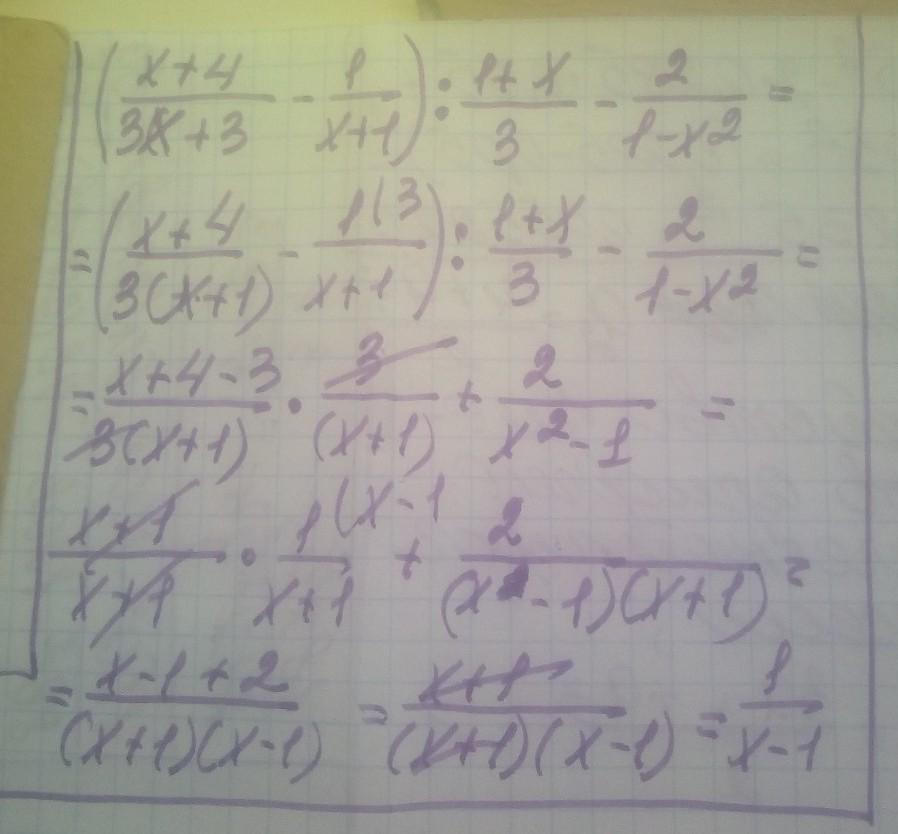 (x+4/3x+3 - 1/x+1) : 1+x/3 - 2/1-x² =
= (x+4/3(x+1) - 1(3/x+1) : 1+x/3 - 2/1-x² =
= x+4-3/3(x+1) · 3/(x+1) + 2/x²-1 =
x+1/x+1 · 1(x-1/x+1 + 2/(x-1)(x+1) =
= x-1+2/(x+1)(x-1) = x+1/(x+1)(x-1) = 1/x-1